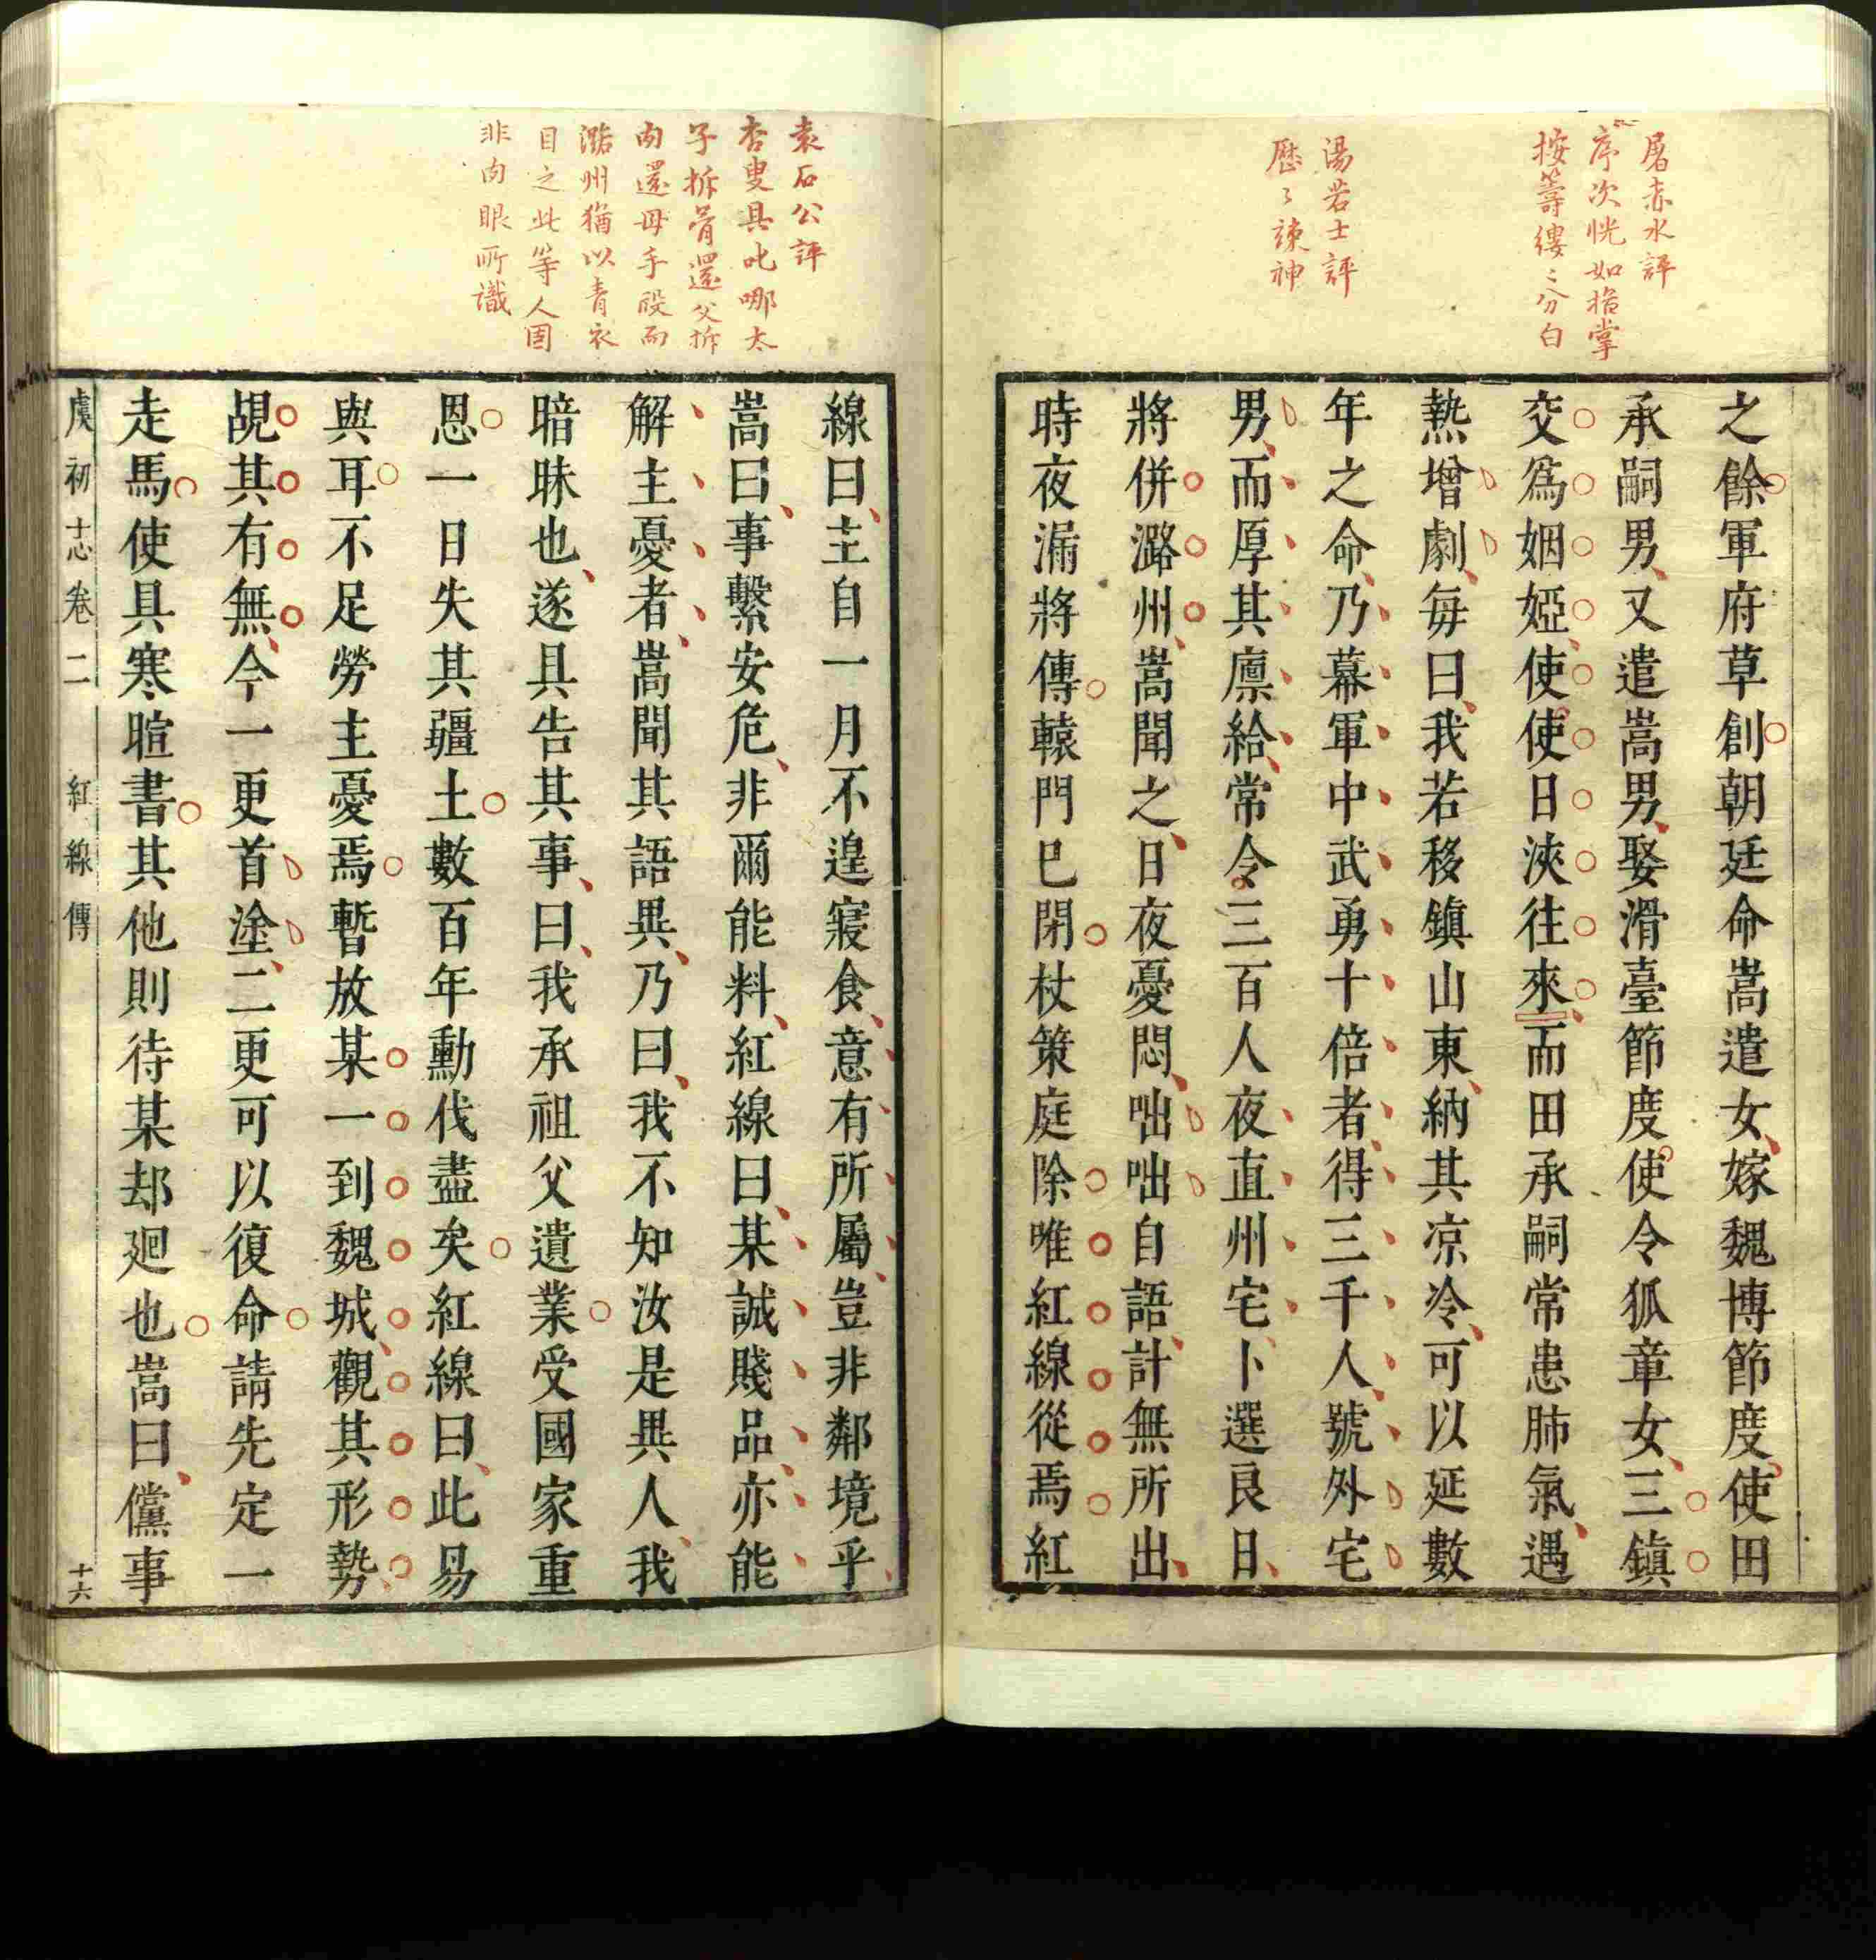 屠赤水評
序次恍如指掌
按籌縷〻分白
湯若士評
歷〻諫神
之餘軍府草創朝廷命嵩遣女嫁魏博節度使田
承嗣男又遣嵩男娶滑臺節度使令狐章女三鎮
交爲姻婭使使日浹往來而田承嗣常患肺氣遇
熱增劇每曰我若移鎮山東納其凉冷可以延數
年之命乃募軍中武勇十倍者得三千人號外宅
男而厚其廪給常令三百人夜直州宅卜選良日
將併潞州嵩聞之日夜憂悶咄咄自語計無所出
時夜漏將傳轅門巳閉杖策庭除唯紅線從焉紅
袁石公評
杏叟具叱哪太
子拆骨還父拆
肉還母手段而
潞州猶以青衣
目之此等人固
非肉眼所識
線曰主自一月不遑寢食意有所屬豈非鄰境乎
嵩曰事繫安危非爾能料紅線曰某誠賤品亦能
解主憂者嵩聞其語異乃曰我不知汝是異人我
暗昧也遂具告其事曰我承祖父遺業受國家重
恩一日失其疆土數百年勳伐盡矣紅線曰此易
與耳不足勞主憂焉暫放某一到魏城觀其形勢
覘其有無今一更首塗二更可以復命請先定一
走馬使具寒暄書其他則待某却廻也嵩曰儻事
虞初志卷二 紅線傳 十六